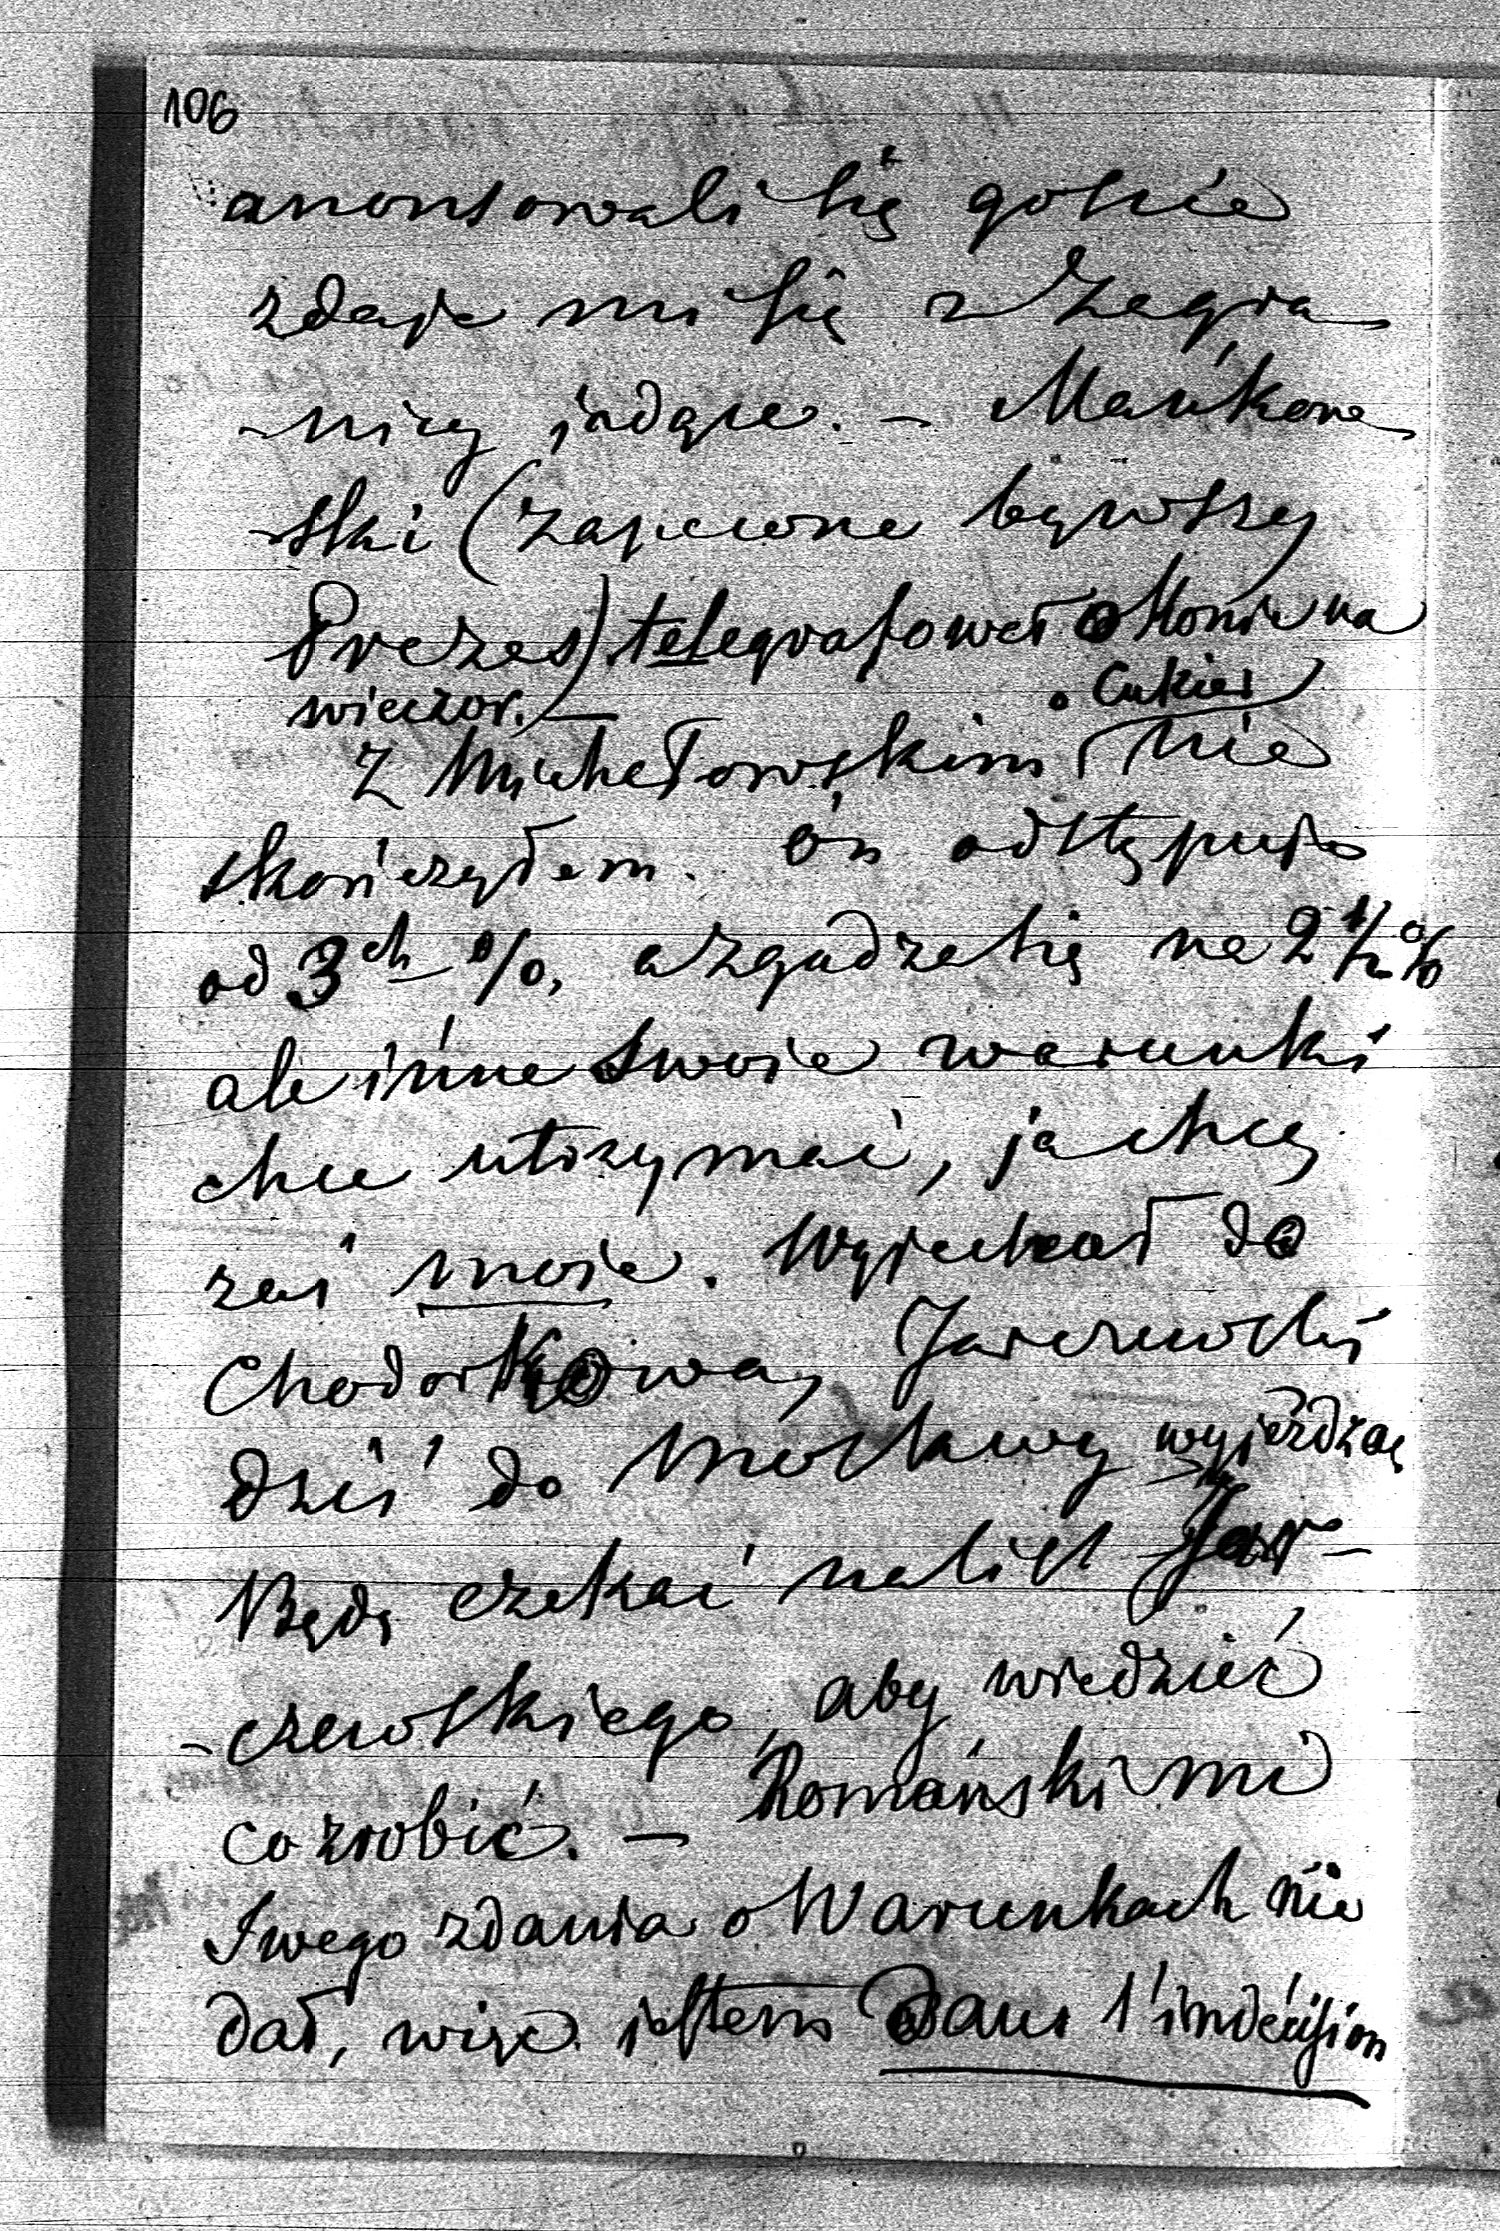 106
anonsowali się goście
zdaje mi się z Zegra
nicy jadące. – Mańkow
ski (zapewne bywszy
Prezes) telegrafował o Konie na
wieczor. –
o Cukier
Z Michałowskim nie
skończyłem. On odstępuje
od 3ch %, a zgadza się na 2 1/2 %
ale inne swoie warunki
chce utrzymać, ja chcę
zaś moie. Wyjechał do
Chodorkowa, Jarczewski
dziś do Moskwy wyjeżdża,
Będę czekać na list Jar-
-czewskiego, aby wiedzieć
co zrobić. – Romański mi
Swego zdania o Warunkach nie
dał, więc jestem Dans l'indécision